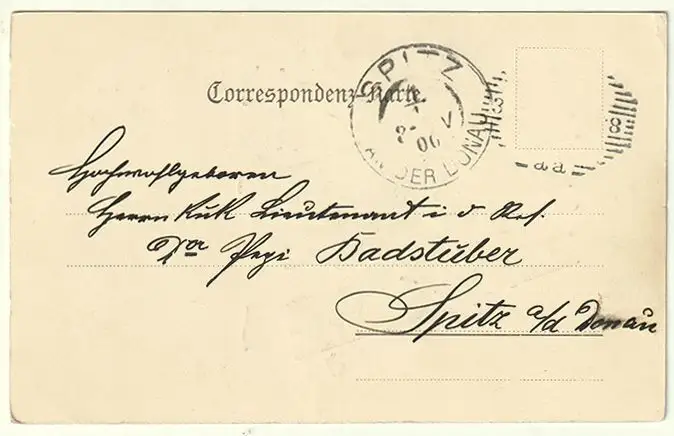 Correspondenz-Karte.
SPITZ
AN DER DONAU
V
06
Hochwohlgeboren
Herrn KuK Lieutenant i d Res.
Dor Pepi Badstüber
Spitz a/d Donau